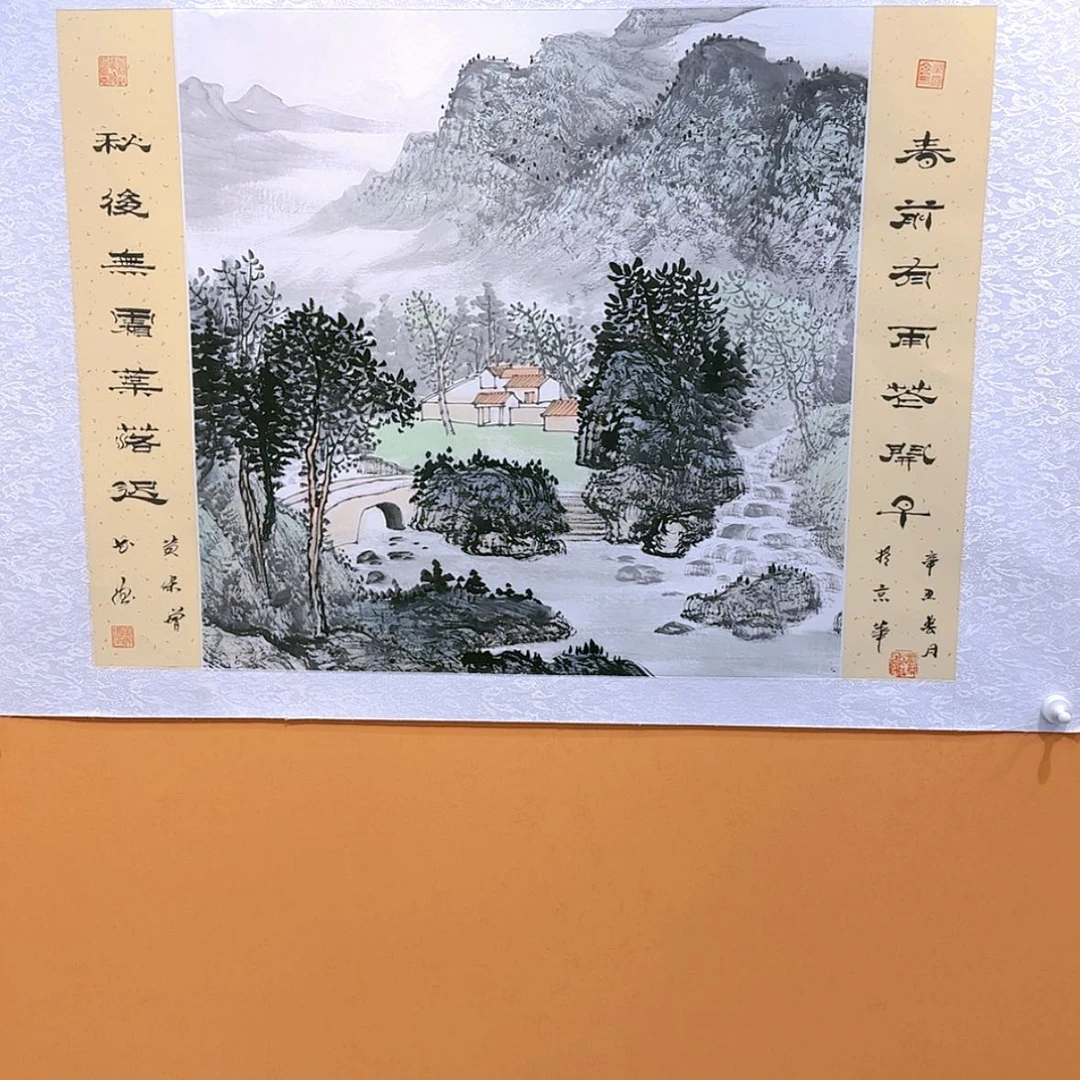 春前有雨花開早
辛丑春月
於京華
秋後無霜葉落遲
黃保
書画